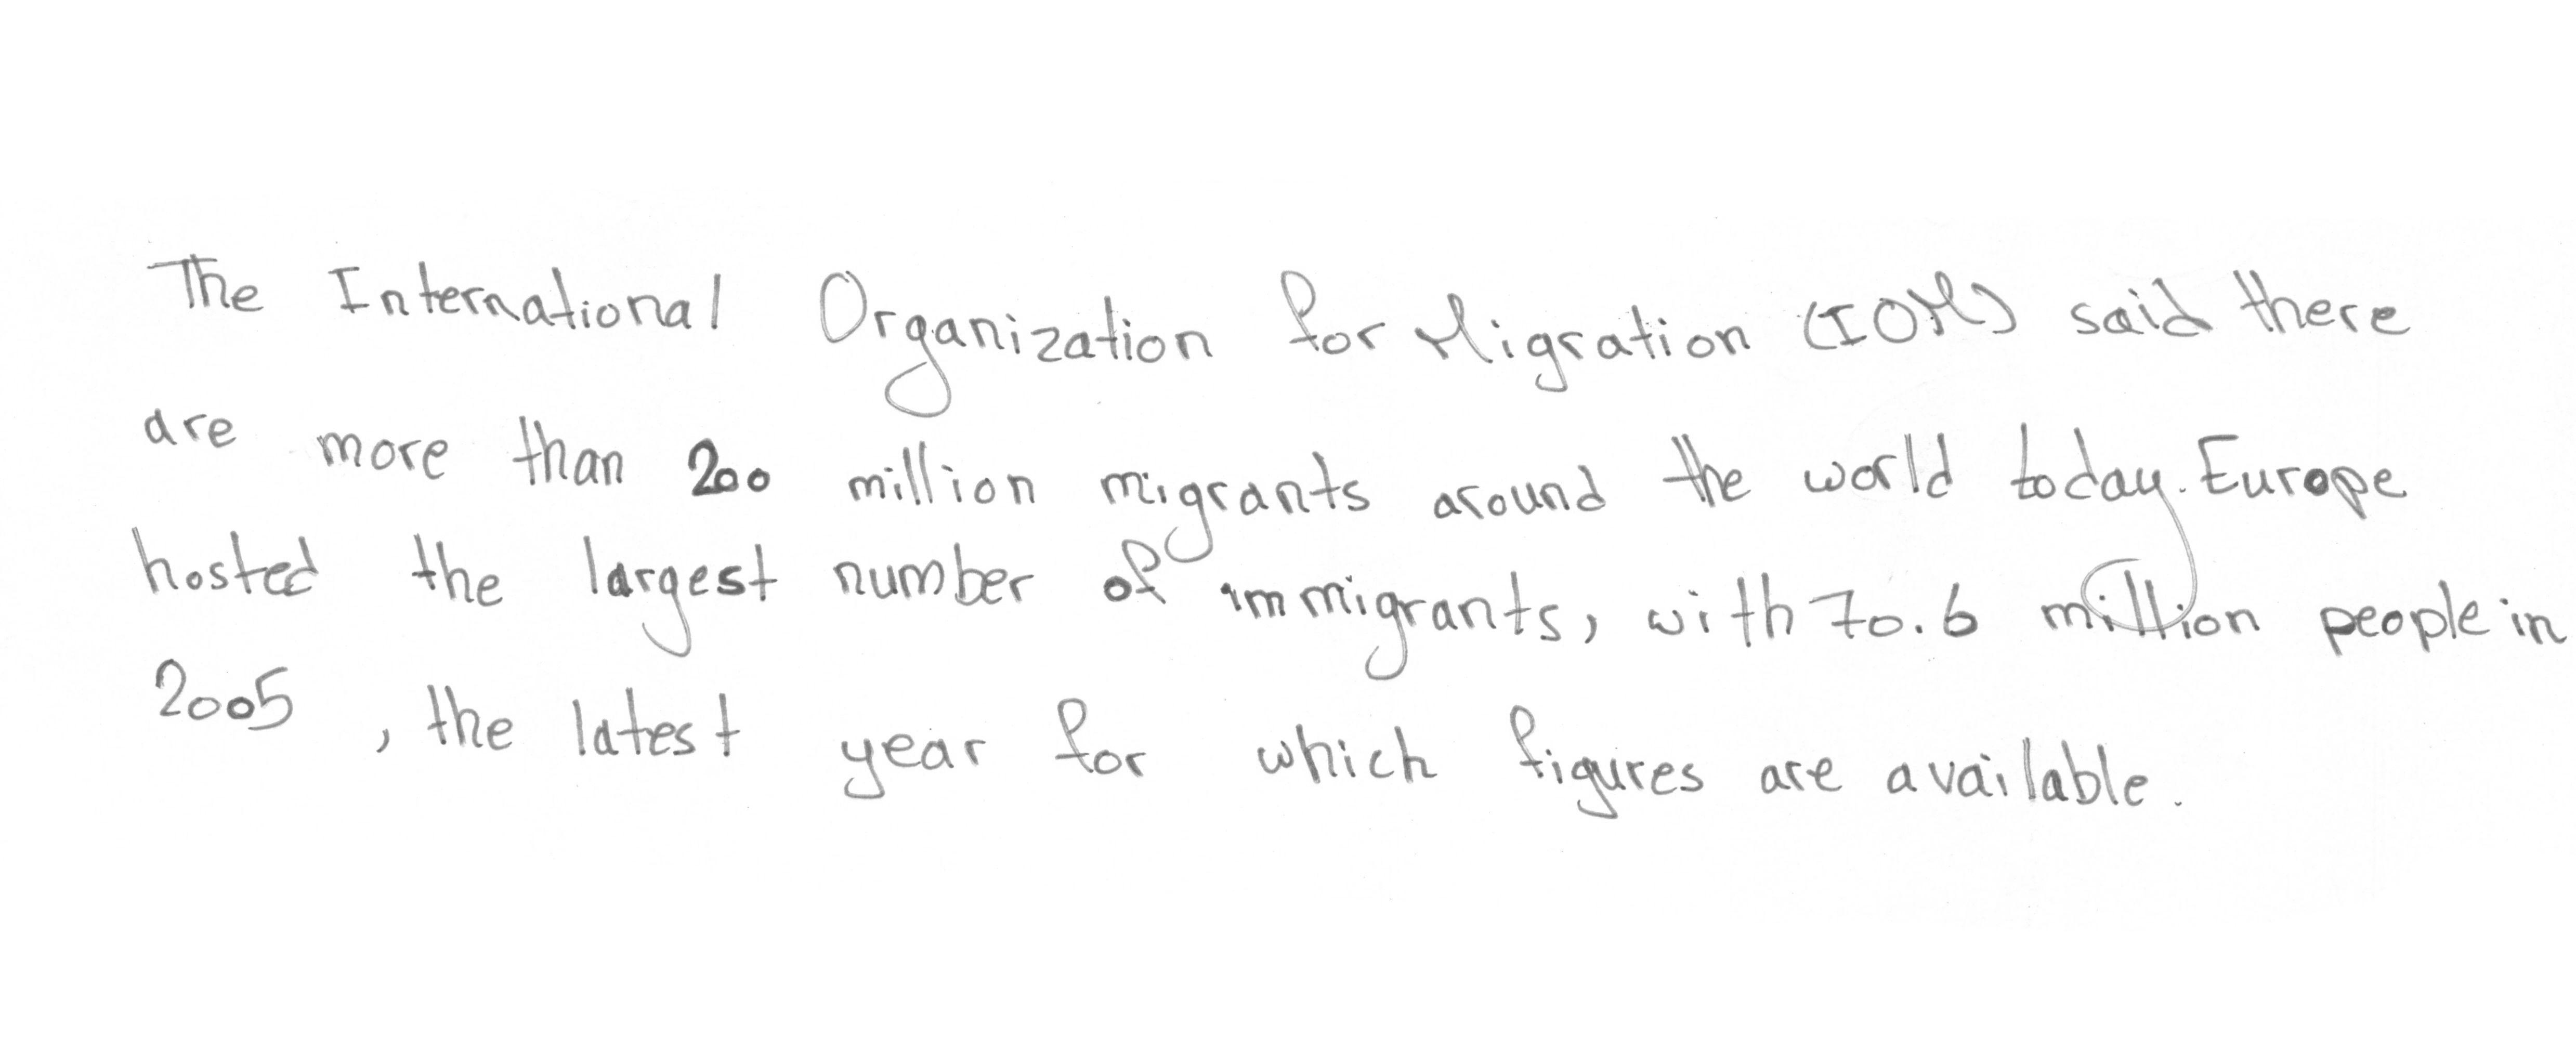 The International Organization for Migration (IOM) said there
are more than 200 million migrants around the world today. Europe
hosted the largest number of immigrants, with 70.6 million people in
2005, the latest year for which figures are available.